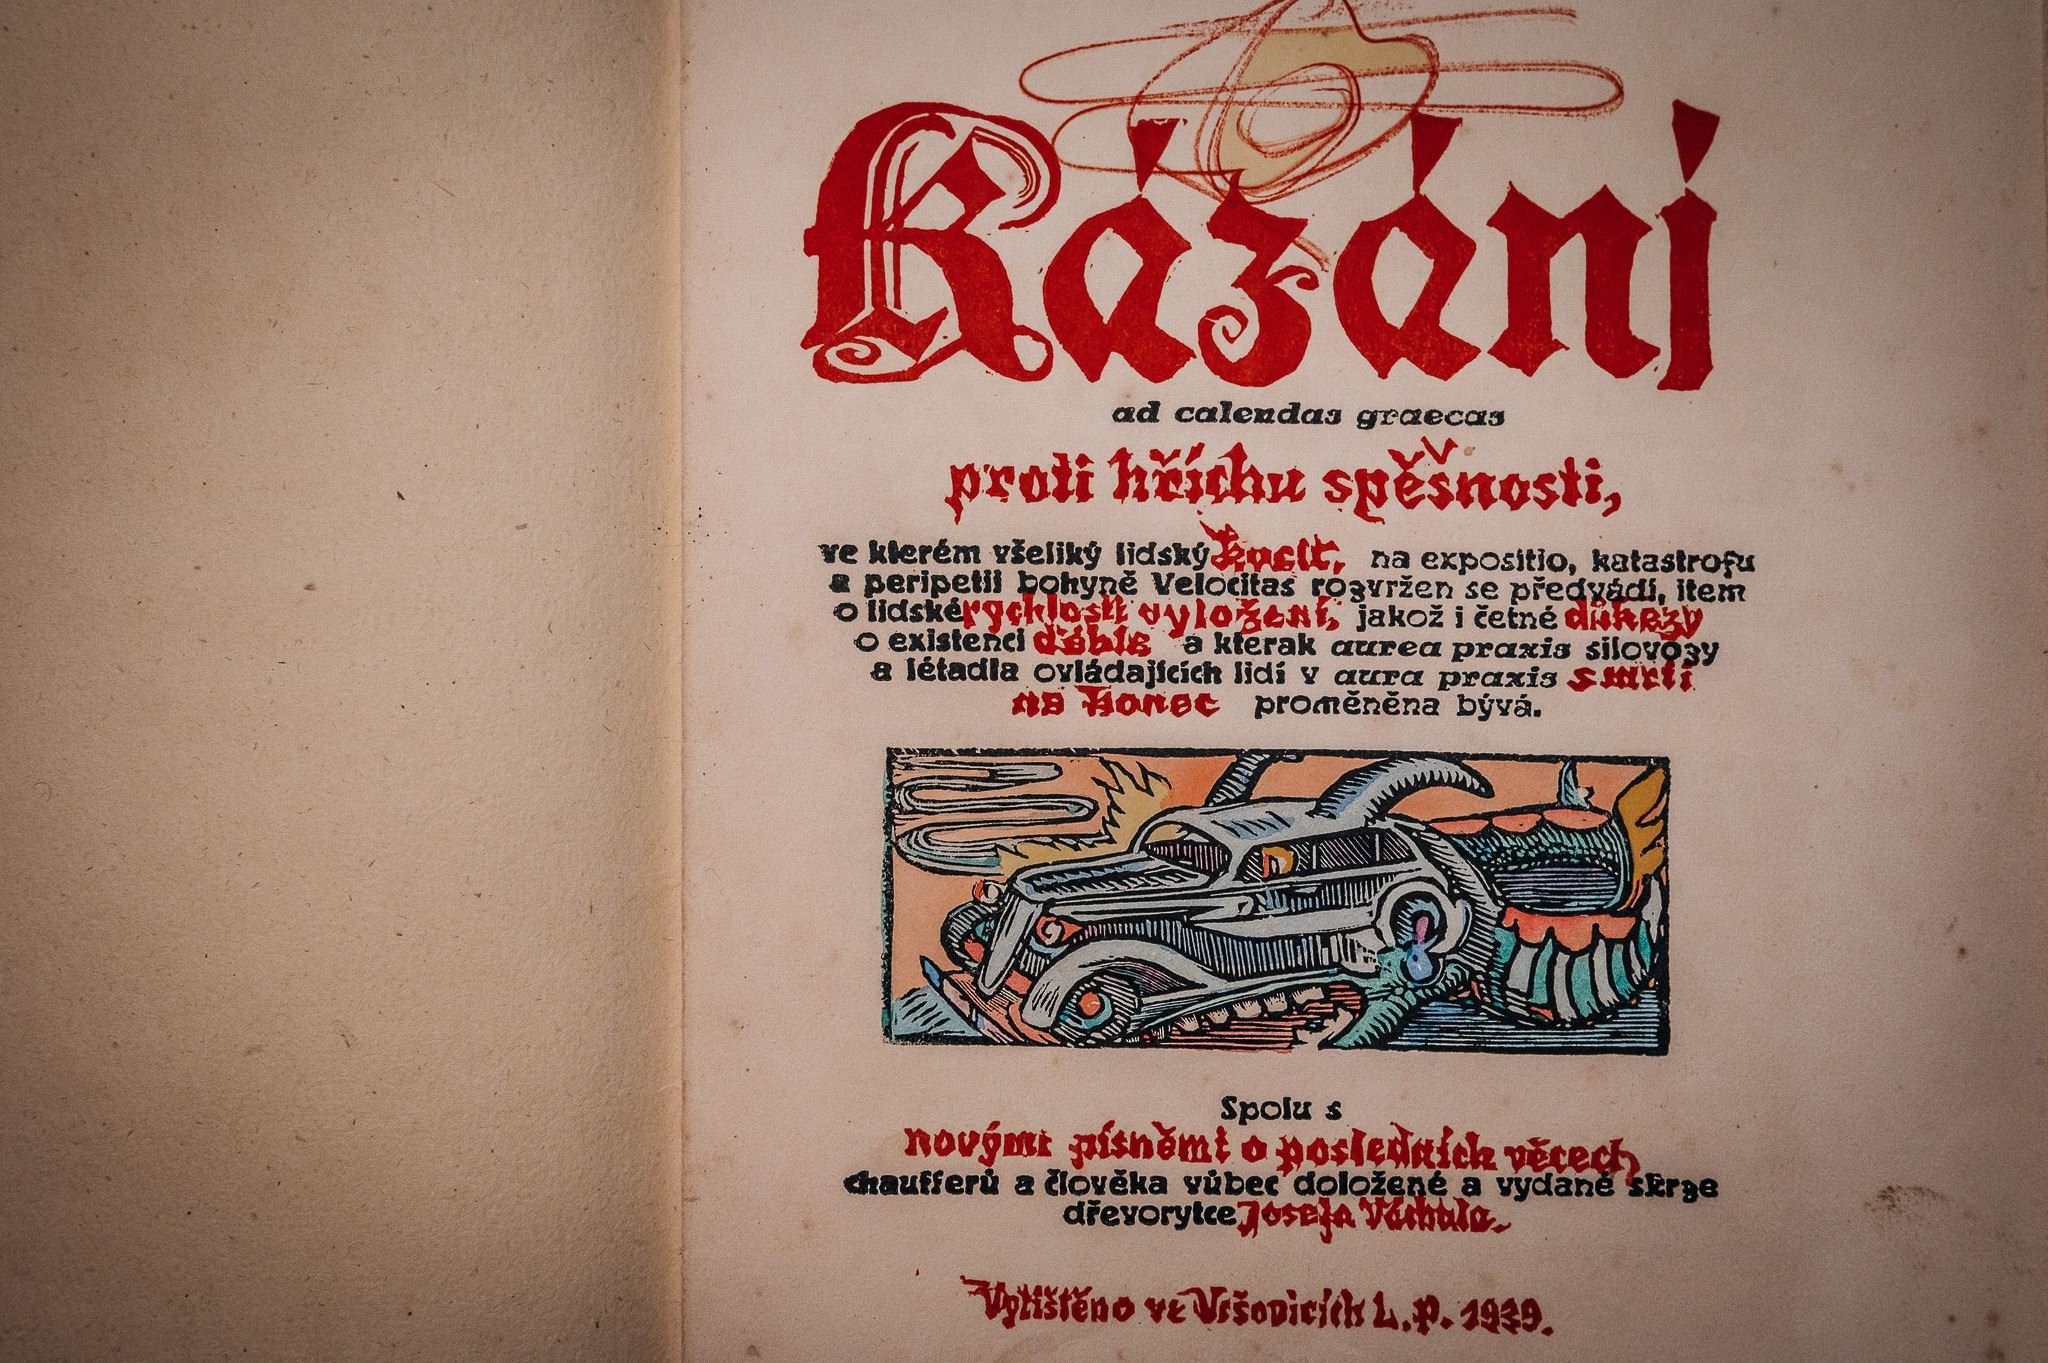 Kázání
ad calendas graecas
proti hříchu spěšnosti,
ve kterém všeliký lidský kvalt, na expositio, katastrofu
a peripetii bohyně Velocitas rozvržen se předvádí, item
o lidské rychlosti vyložení, jakož i četné důkazy
o existenci ďábla a kterak aurea praxis silovozy
a létadla ovládajících lidí v aura praxis smrti
na konec proměněna bývá.
Spolu s
novými písněmi o posledních věcech
chaufferů a člověka vůbec doložené a vydané skrze
dřevorytce Josefa Váchala.
Vytištěno ve Vršovicích L. P. 1939.